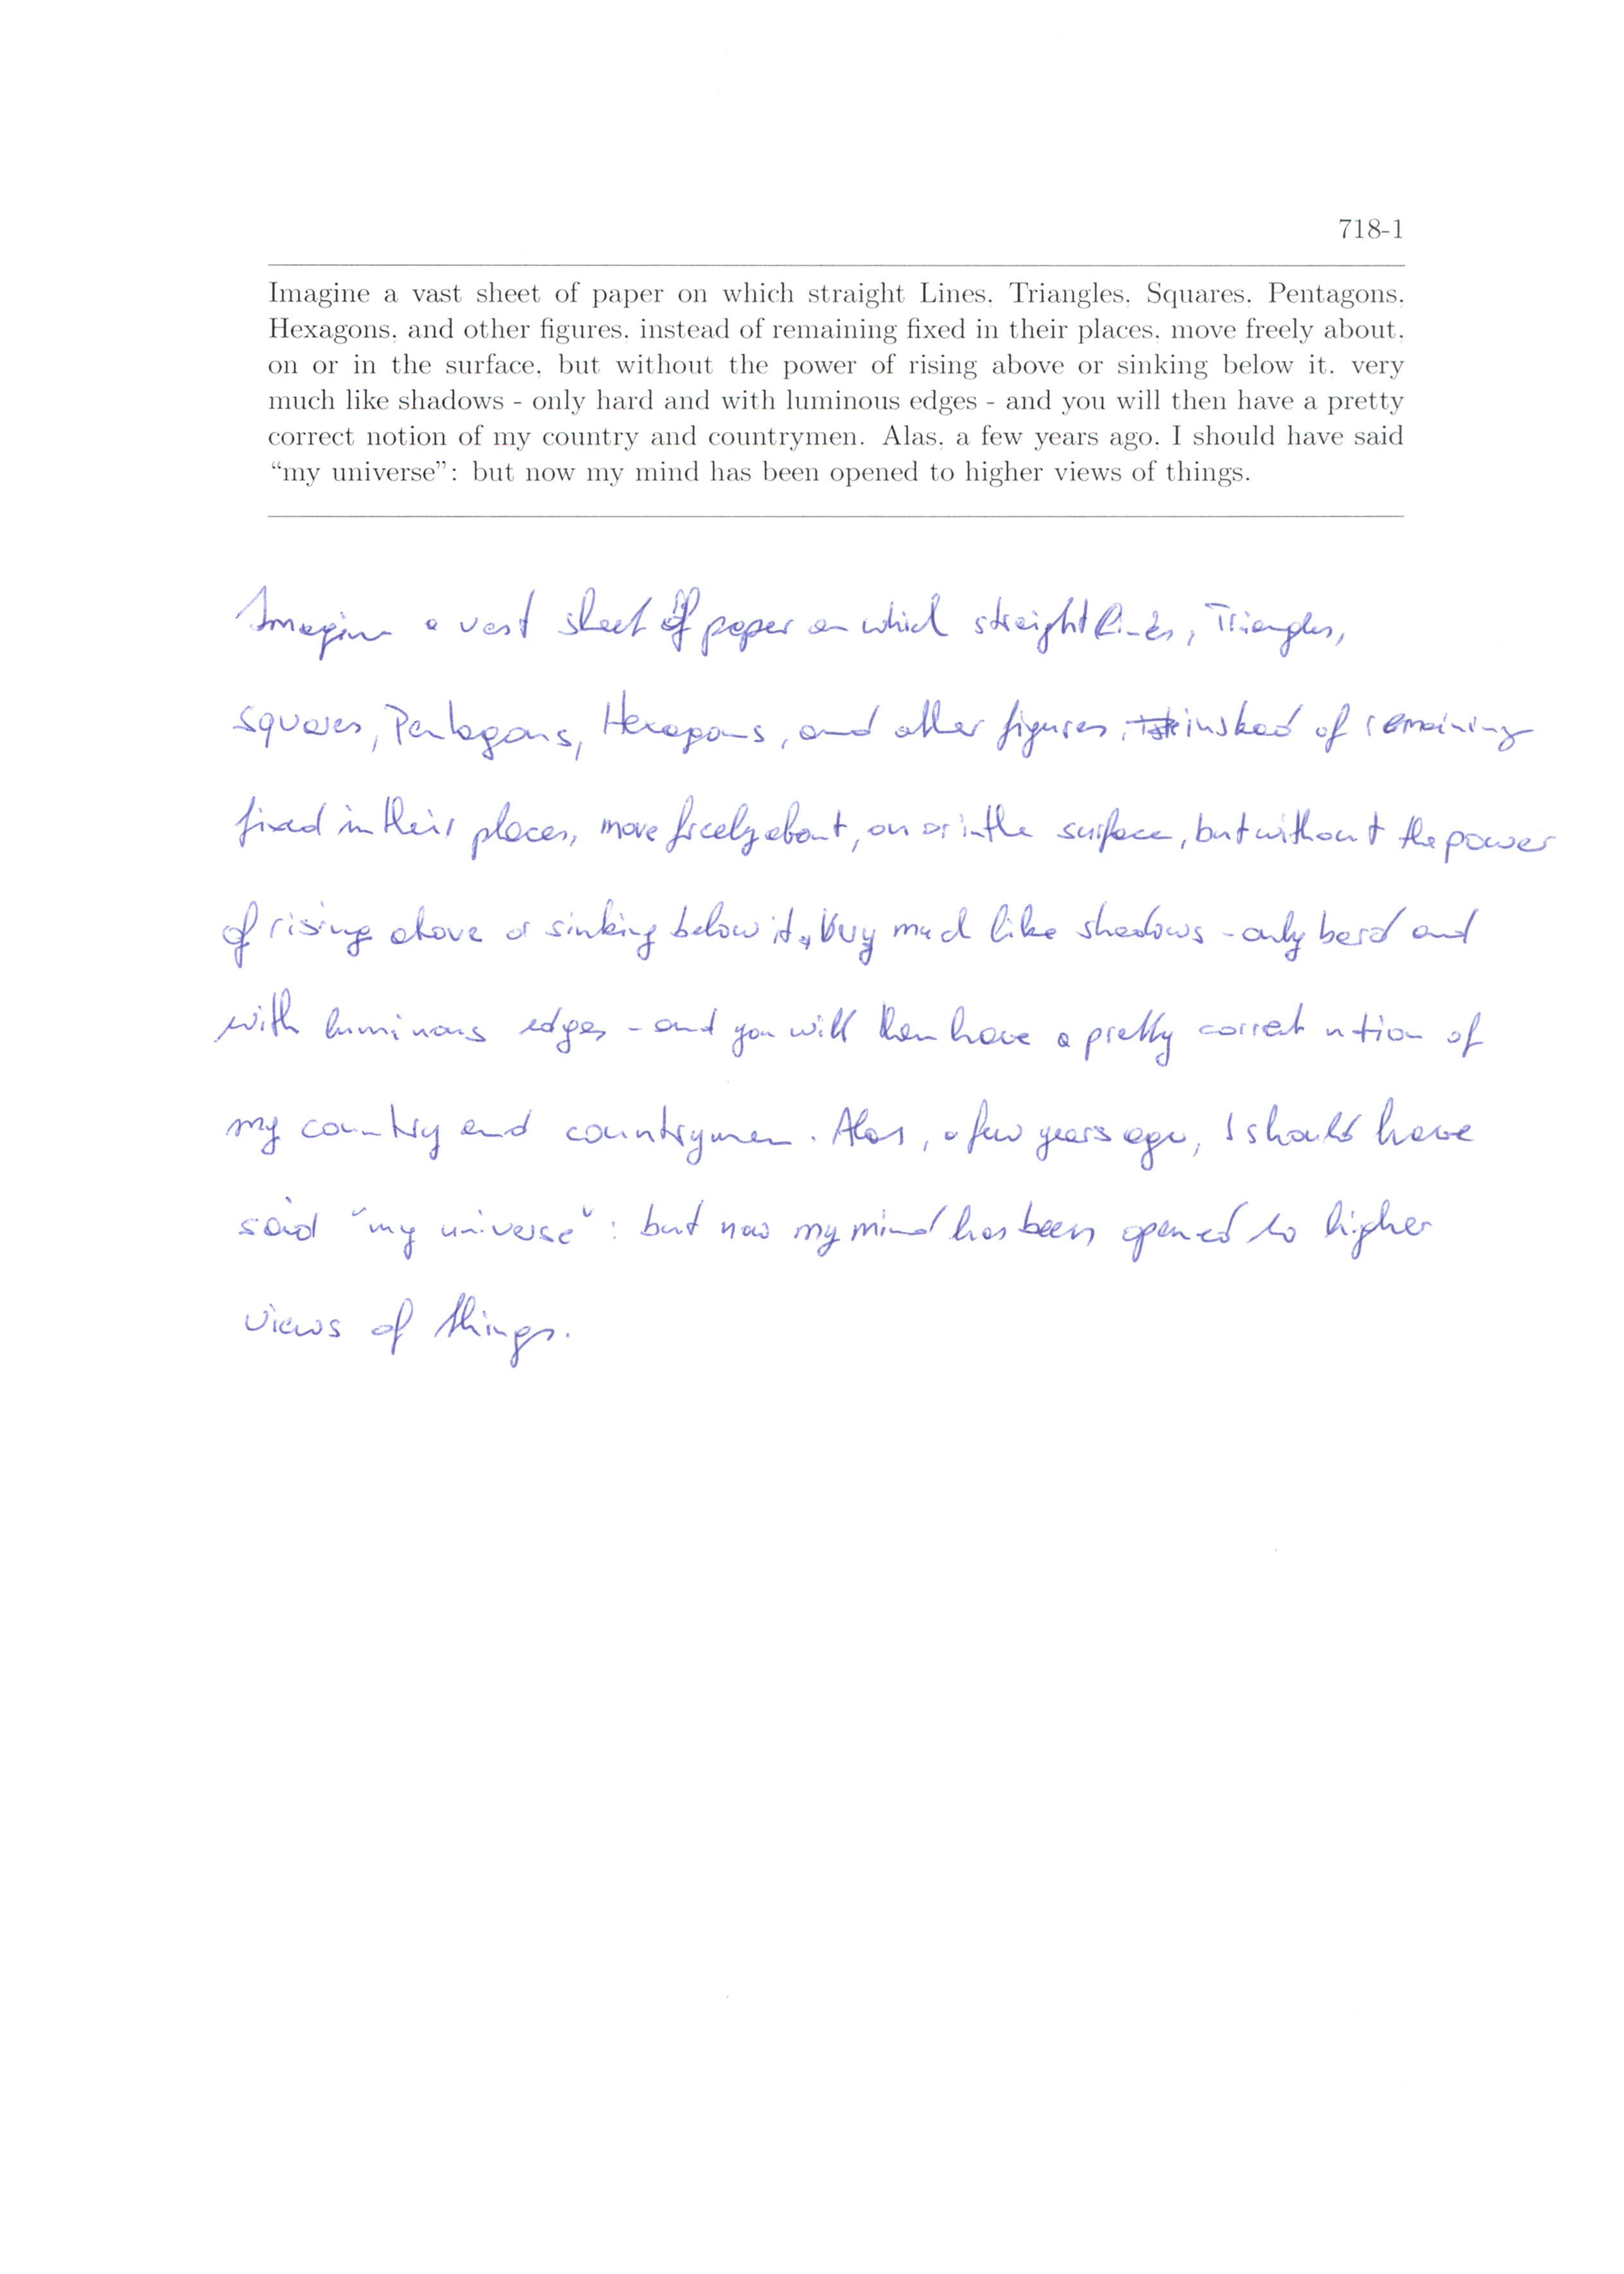 718-1
Imagine a vast sheet of paper on which straight Lines. Triangles. Squares. Pentagons.
Hexagons. and other figures. instead of remaining fixed in their places. move freely about.
on or in the surface. but without the power of rising above or sinking below it. very
much like shadows - only hard and with luminous edges - and you will then have a pretty
correct notion of my country and countrymen. Alas. a few years ago. I should have said
“my universe”: but now my mind has been opened to higher views of things.
Imagine a vast sheet of paper on which straight Lines, Triangles,
Squares, Pentagons, Hexagons, and other figures, instead of remaining
fixed in their places, move freely about, on or in the surface, but without the power
of rising above or sinking below it, very much like shadows - only hard and
with luminous edges - and you will then have a pretty correct ntion of
my country and countrymen. Alas, a few years ago, I should have
said "my universe": but now my mind has been opened to higher
views of things.